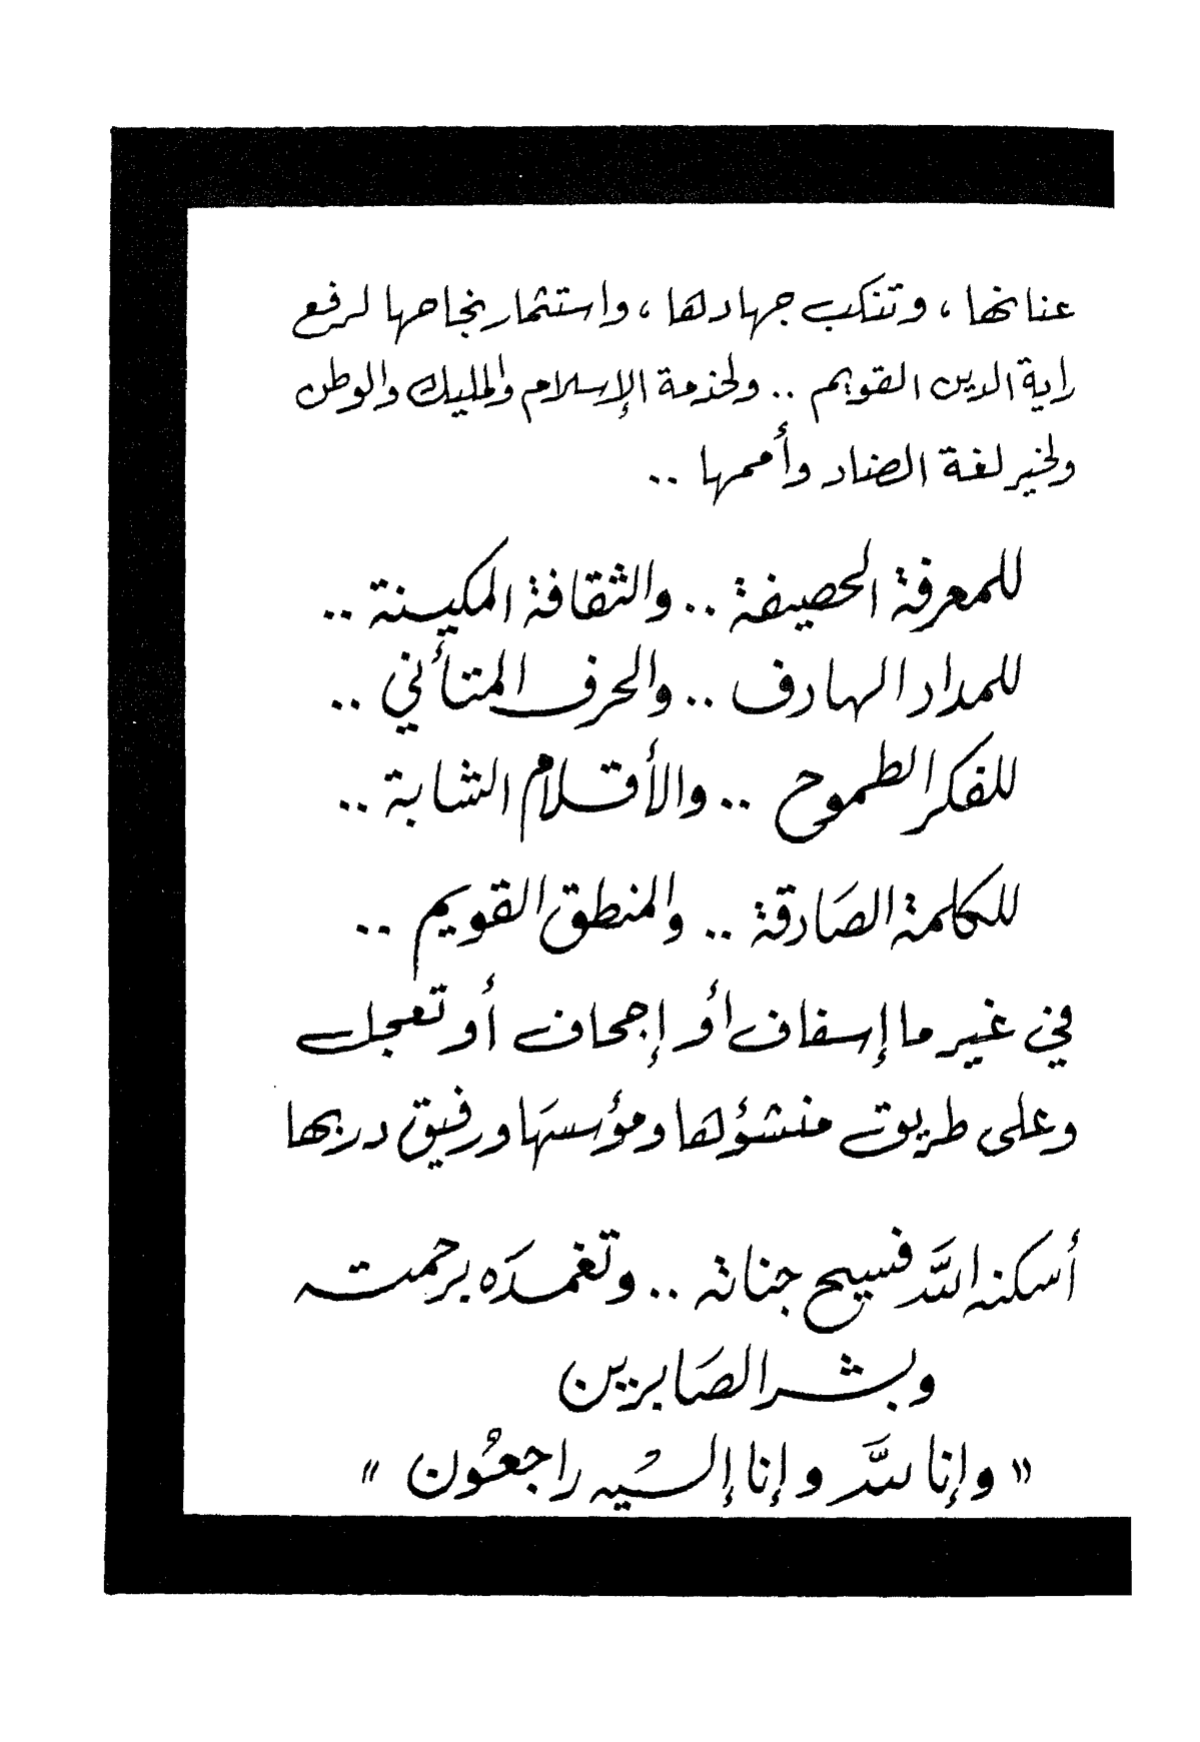 عنانها ، وتنكب جهادها ، واستثمار نجاحها لرفع
راية الدين القويم .. ولخدمة الإسلام والمليك والوطن
ولخير لغة الضاد وأممها ..
للمعرفة الحصيفة .. والثقافة المكينة ..
للمداد الهادف .. والحرف المتأني ..
للفكر الطموح .. والأقلام الشابة ..
للكلمة الصَادقة .. والمنطق القويم ..
في غير ما إسفاف أو إجحاف أو تعجل
وعلى طريق منشؤها ومؤسسَها ورفيق دربها
أسكنه اللَّه فسيح جناته .. وتغمدَه برحمته
وبشر الصَابرين
« وإنا للَّه وإنا إليْه راجعُون »